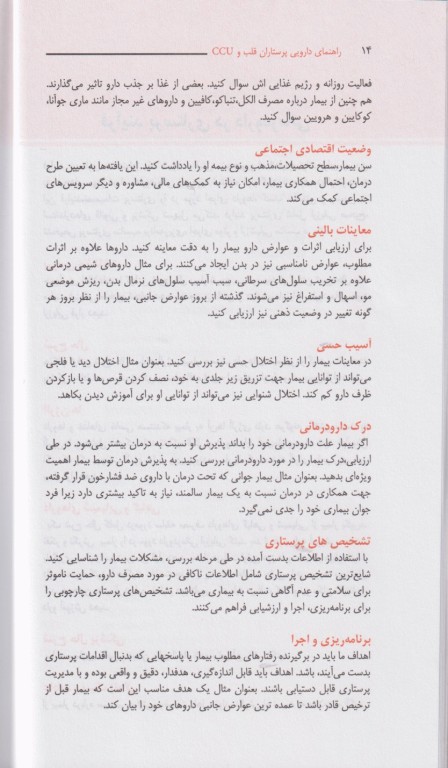 ۱۴ راهنمای دارویی پرستاران قلب و CCU
فعالیت روزانه و رژیم غذایی اش سوال کنید. بعضی از غذا بر جذب دارو تاثیر می‌گذارند.
هم چنین از بیمار درباره مصرف الکل،تنباکو،کافیین و داروهای غیر مجاز مانند ماری جوآنا،
کوکایین و هرویین سوال کنید.
وضعیت اقتصادی اجتماعی
سن بیمار،سطح تحصیلات،مذهب و نوع بیمه او را یادداشت کنید. این یافته‌ها به تعیین طرح
درمان، احتمال همکاری بیمار، امکان نیاز به کمک‌های مالی، مشاوره و دیگر سرویس‌های
اجتماعی کمک می‌کند.
معاینات بالینی
برای ارزیابی اثرات و عوارض دارو بیمار را به دقت معاینه کنید. داروها علاوه بر اثرات
مطلوب، عوارض نامناسبی نیز در بدن ایجاد می‌کنند. برای مثال داروهای شیمی درمانی
علاوه بر تخریب سلول‌های سرطانی، سبب آسیب سلول‌های نرمال بدن، ریزش موضعی
مو، اسهال و استفراغ نیز می‌شوند. گذشته از بروز عوارض جانبی، بیمار را از نظر بروز هر
گونه تغییر در وضعیت ذهنی نیز ارزیابی کنید.
آسیب حسی
در معاینات بیمار را از نظر اختلال حسی نیز بررسی کنید. بعنوان مثال اختلال دید یا فلجی
می‌تواند از توانایی بیمار جهت تزریق زیر جلدی به خود، نصف کردن قرص‌ها و یا بازکردن
ظرف دارو کم کند. اختلال شنوایی نیز می‌تواند از توانایی او برای آموزش دیدن بکاهد.
درک دارودرمانی
اگر بیمار علت دارودرمانی خود را بداند پذیرش او نسبت به درمان بیشتر می‌شود. در طی
ارزیابی،درک بیمار را در مورد دارودرمانی بررسی کنید. به پذیرش درمان توسط بیمار اهمیت
ویژه‌ای بدهید. بعنوان مثال بیمار جوانی که تحت درمان با داروی ضد فشارخون قرار گرفته،
جهت همکاری در درمان نسبت به یک بیمار سالمند، نیاز به تاکید بیشتری دارد زیرا فرد
جوان بیماری خود را جدی نمی‌گیرد.
تشخیص های پرستاری
با استفاده از اطلاعات بدست آمده در طی مرحله بررسی، مشکلات بیمار را شناسایی کنید.
شایع‌ترین تشخیص پرستاری شامل اطلاعات ناکافی در مورد مصرف دارو، حمایت ناموثر
برای سلامتی و عدم آگاهی نسبت به بیماری می‌باشد. تشخیص‌های پرستاری چارچوبی را
برای برنامه‌ریزی، اجرا و ارزشیابی فراهم می‌کنند.
برنامه‌ریزی و اجرا
اهداف ما باید در برگیرنده رفتارهای مطلوب بیمار یا پاسخهایی که بدنبال اقدامات پرستاری
بدست می‌آیند، باشد. اهداف باید قابل اندازه‌گیری، هدفدار، دقیق و واقعی بوده و با مدیریت
پرستاری قابل دستیابی باشند. بعنوان مثال یک هدف مناسب این است که بیمار قبل از
ترخیص قادر باشد تا عمده ترین عوارض جانبی داروهای خود را بیان کند.